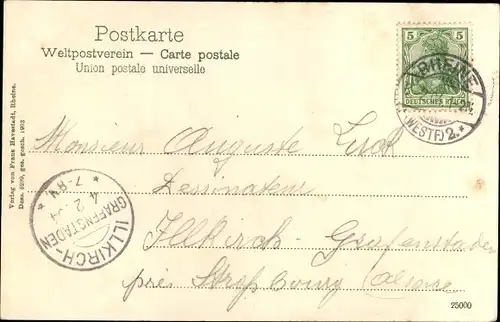 Postkarte
Weltpostverein — Carte postale
Union postale universelle
5 5
DEUTSCHES REICH
RHEINE
(WESTF.) 2.*
Monsieur Auguste
Dessinateur
Illkirch-Grafenstaden
près Straßbourg (Alsace
ILLKIRCH-
GRAFENSTADEN
4.2.
* 7-8V *
Verlag von Franz Haverstadt, Rheine.
Dess. ges. gesch. 1903
25000